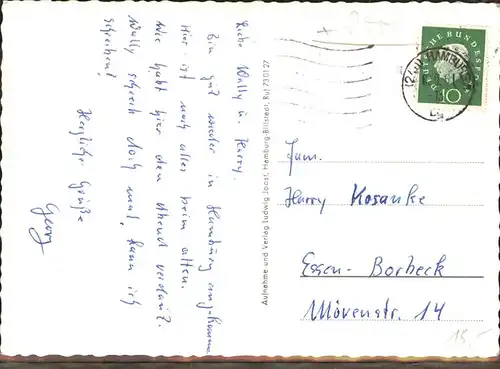 Liebe Wally u. Harry.
Bin gut wieder in Hamburg angekommen
Hier ist noch alles beim alten.
Wie habt hier den Abend verdaut?
Wally schreib doch mal, kann ich
schreiben!
Herzliche Grüße
Georg
Aufnahme und Verlag Ludwig Jpost, Hamburg-Billstedt, Ruf 73 01 27
DEUTSCHE BUNDESPOST
10
HAMBURG
Fam.
Harry Kosanke
Essen-Borbeck
Mövenstr. 14
15,-